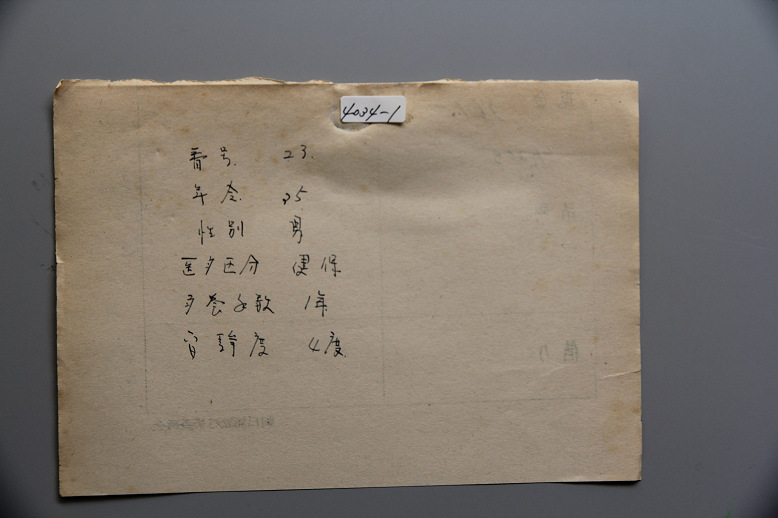 4034-1
番号. 23.
年令. 35
性別 男
医療区分 健保
療養年数 1年
安静度 4度.